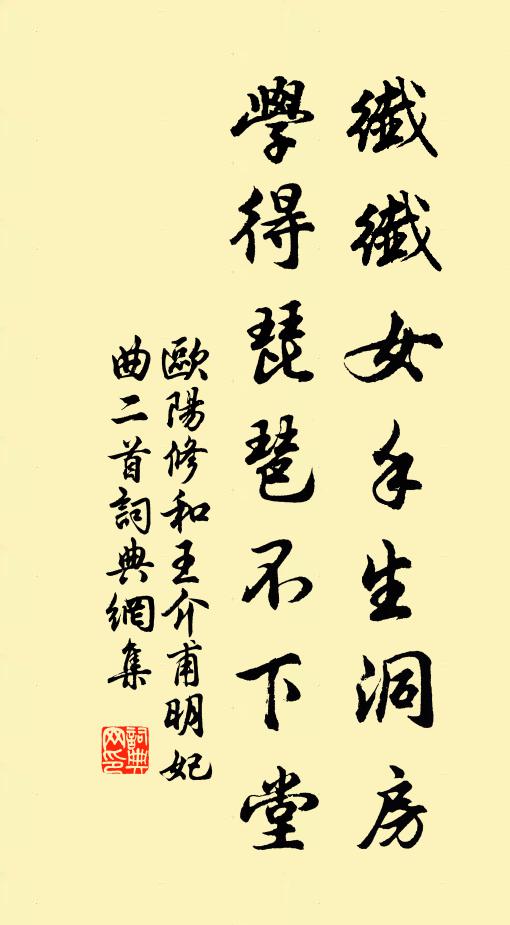 纖纖女手生洞房
學得琵琶不下堂
歐陽修和王介甫明妃
曲二首詞典網集
詞典
网印